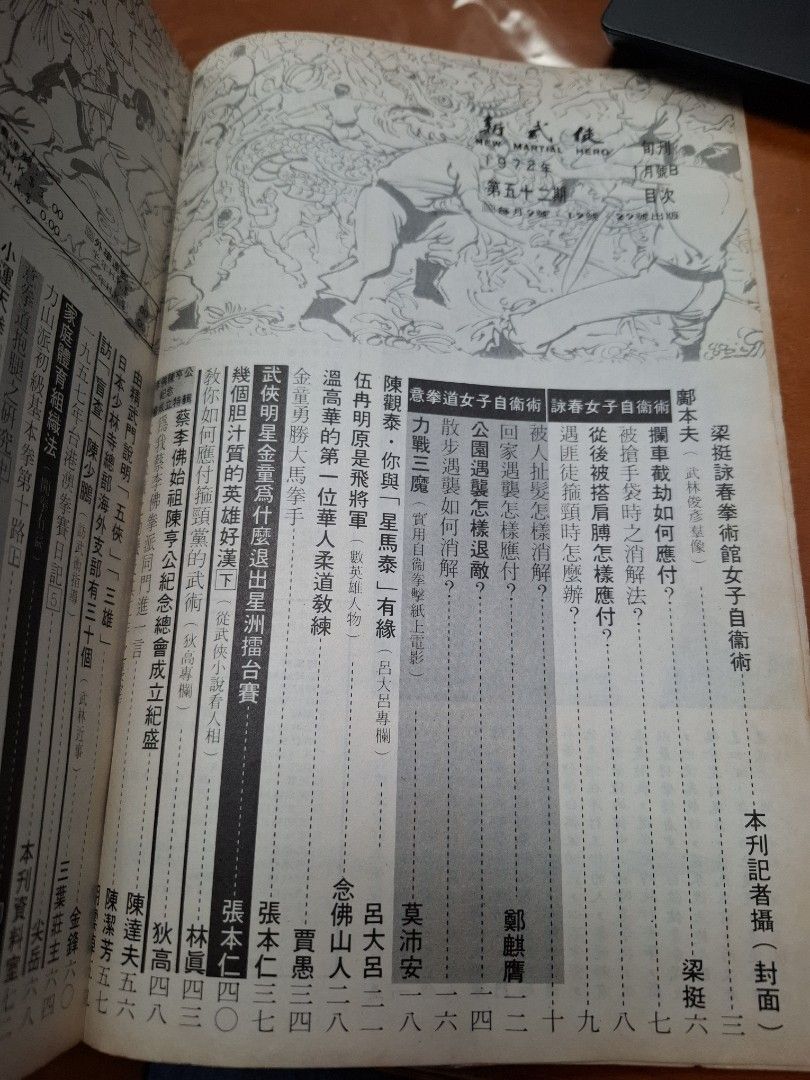 新武俠
NEW MARTIAL HERO
旬刊
1972年
1月號日
第五十二期
目次
每月9號·19號·29號出版
梁挺詠春拳術館女子自衞術 本刊記者攝(封面)
鄺本夫(武林俊彦羣像) 三
詠春女子自衞術
攔車截劫如何應付? 梁挺 六
被搶手袋時之消解法? 七
從後被搭肩膊怎樣應付? 八
遇匪徒箍頸時怎麼辦? 九
意拳道女子自衞術
被人扯髮怎樣消解? 十
回家遇襲怎樣應付? 鄭麒膺 一二
公園遇襲怎樣退敵? 一四
散步遇襲如何消解? 一六
力戰三魔(實用自衞拳擊紙上電影) 莫沛安 一八
陳觀泰·你與「星馬泰」有緣(呂大呂專欄) 呂大呂 二一
伍冉明原是飛將軍(數英雄人物) 念佛山人 二八
溫高華的第一位華人柔道敎練
金童勇勝大馬拳手 賈愚 三四
武俠明星金童爲什麼退出星洲擂台賽 張本仁 三七
幾個胆汁質的英雄好漢下(從武俠小說看人相) 張本仁 四〇
敎你如何應付箍頸黨的武術(狄高專欄) 林眞 四三
蔡李佛始祖陳亨公紀念總會成立紀盛 狄高 四八
爲我蔡李佛拳派同門進一言
由精武門說明「五俠」「三雄」 陳達夫 五六
日本少林寺總部海外支部有三十個(武林近事) 陳潔芳 五七
訪「盲查」陳少鵬
一九五七年台港澳拳賽日記⑤ 金鋒 六〇
家庭體育組織法 三葉莊主 六四
力山派初級基本拳第十路上 尖岳 六八
意拳道抱腰之研 本刊資料室